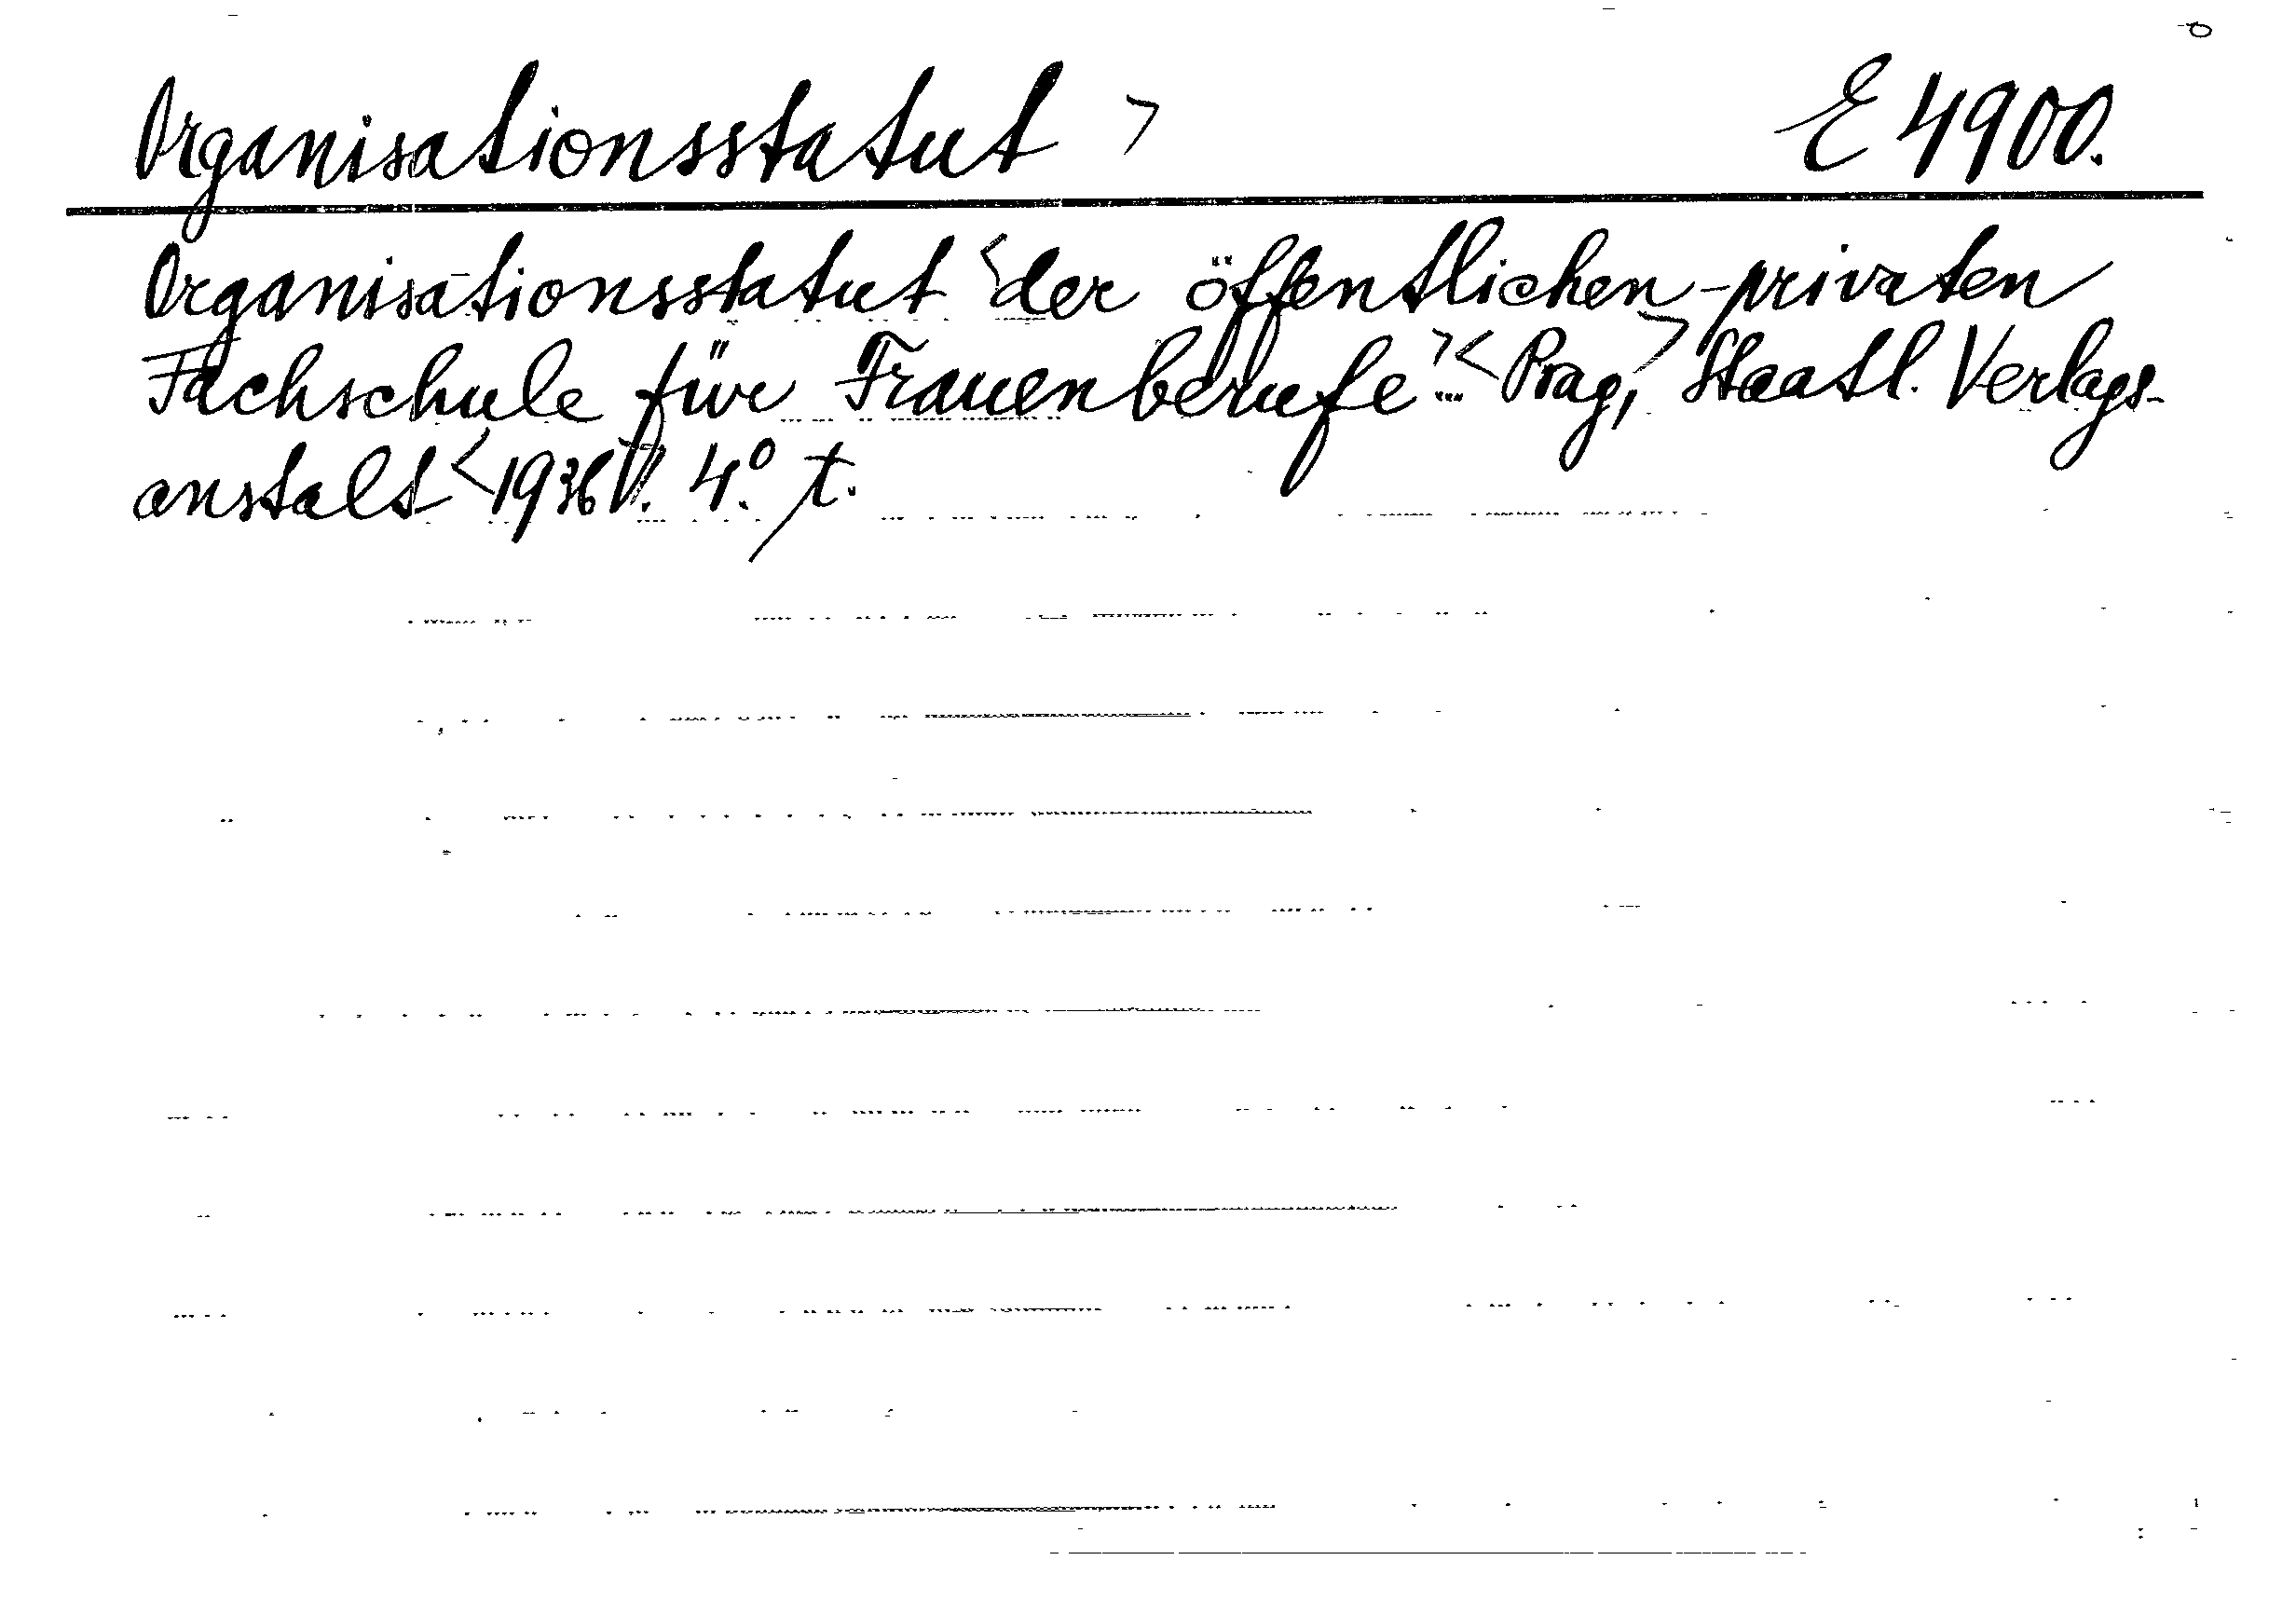 Organisationsstatut > E 4900.
Organisationsstatut <der öffentlichen-privaten
Fachschule für Frauenberufe>...< Prag,> Staatl. Verlags-
anstalt <1936>. 4.° t.